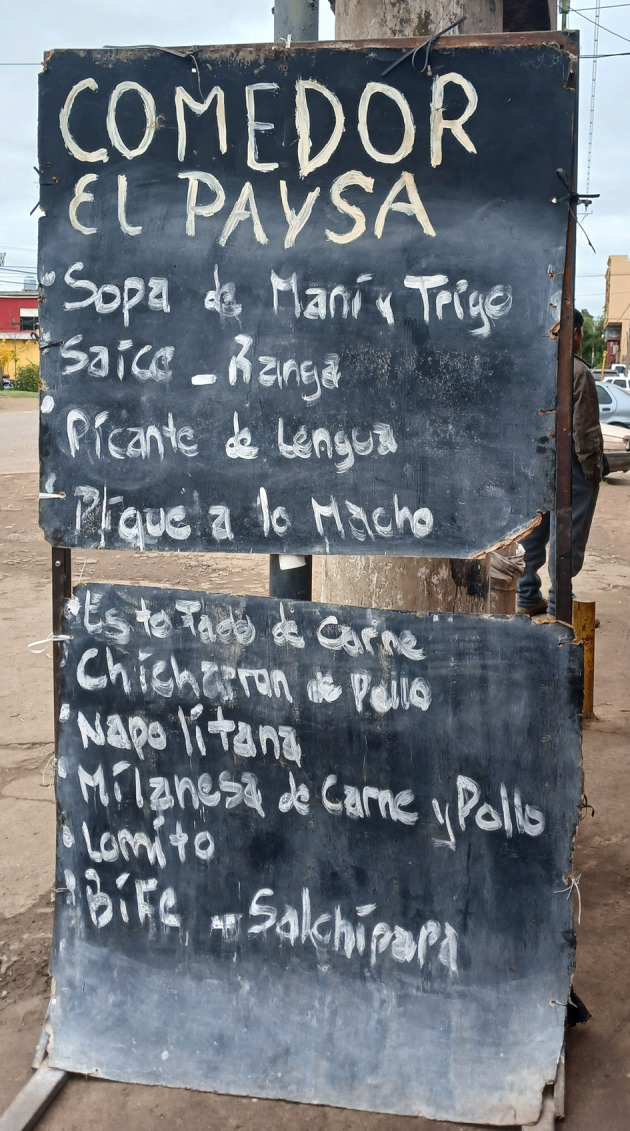 COMEDOR
EL PAYSA
Sopa de Maní y Trigo
Saice - Ranga
Picante de Lengua
Pique a lo Macho
Estofado de Carne
Chicharron de Pollo
Napolitana
Milanesa de Carne y Pollo
Lomito
Bife - Salchipapa